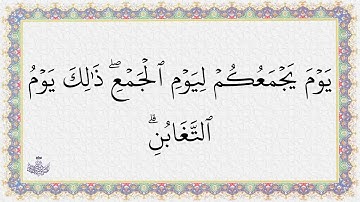 يَوْمَ يَجْمَعُكُمْ لِيَوْمِ ٱلْجَمْعِ ۖ ذَٰلِكَ يَوْمُ
ٱلتَّغَابُنِ ۗ